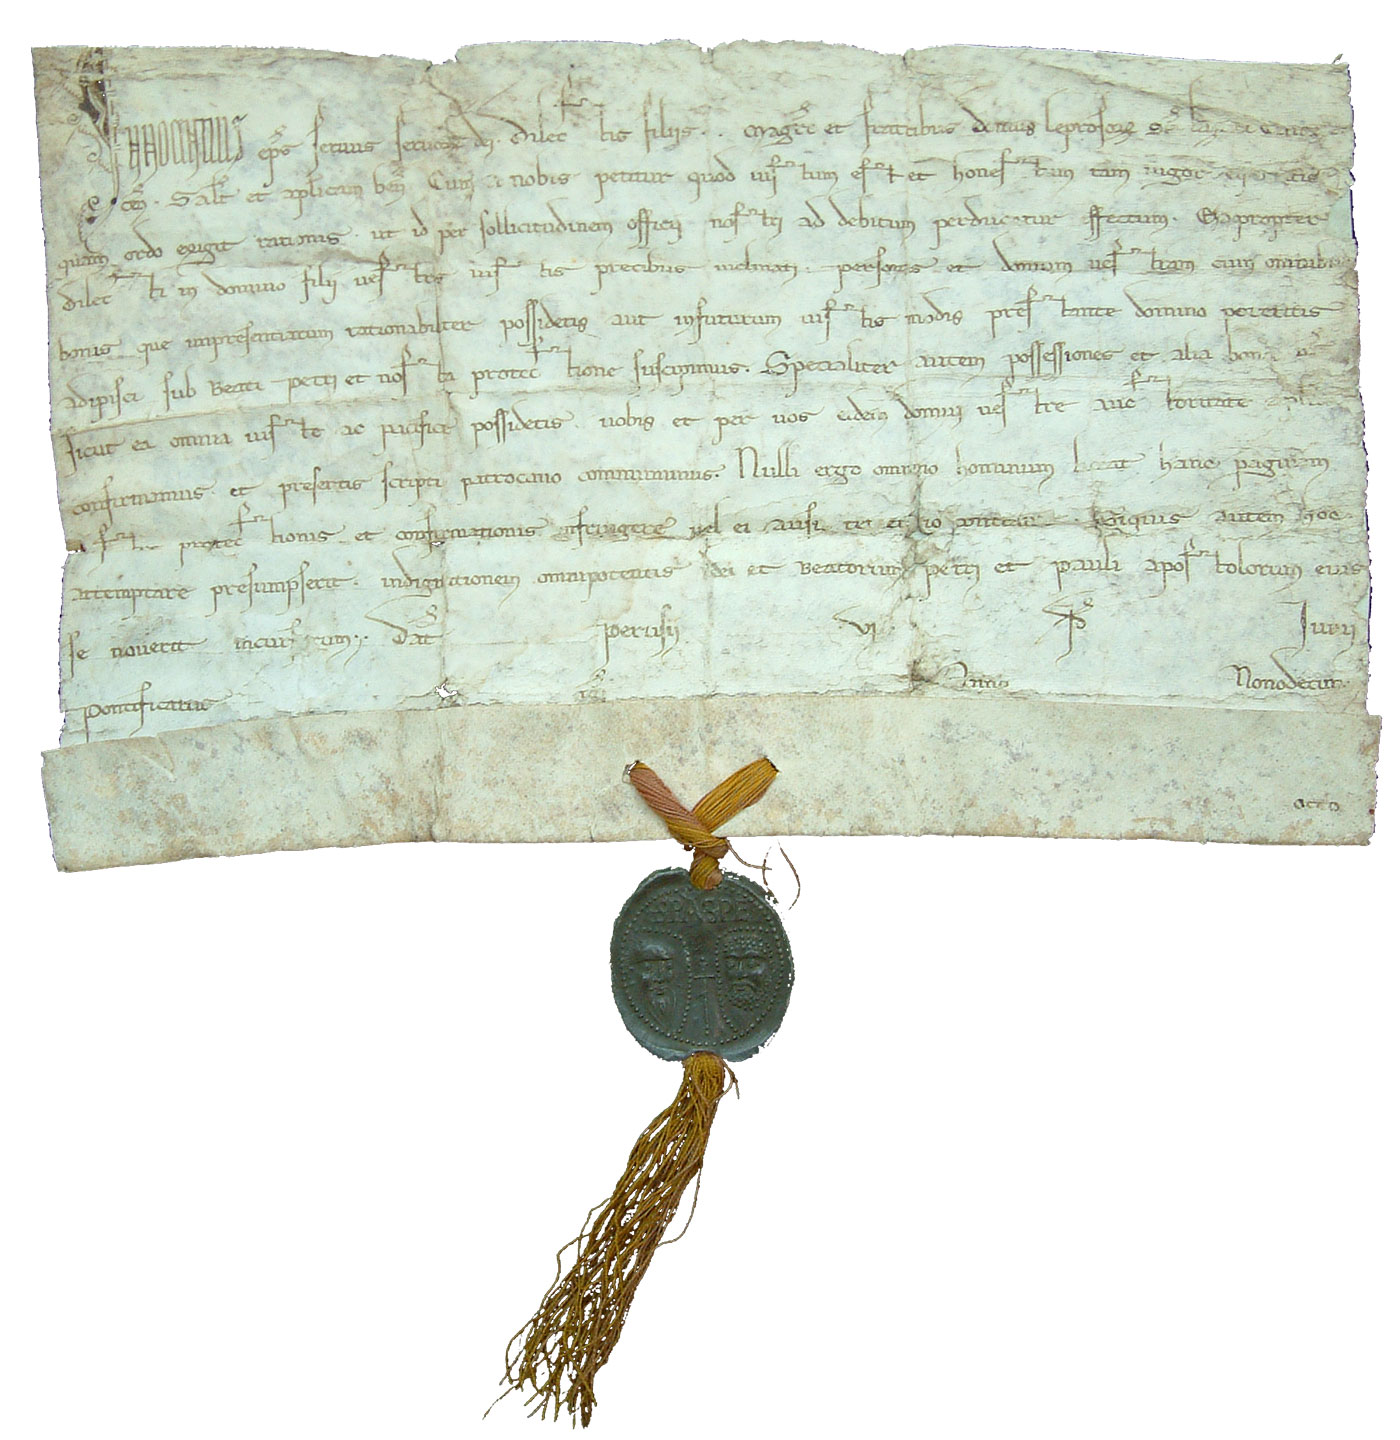 Innocentius eps servus servor dei. Dilectis filiis . . Magro et fratribus domus leprosor
Salt et aplicam ben. Cum a nobis petitur quod iustum est et honestum tam vigor equitatis
quam ordo exigit rationis. ut id per sollicitudinem officii nostri ad debitum perducatur effectum. Eapropter
dilecti in domino filii vestris iustis precibus inclinati. personas et domum vestram cum omnibus
bonis que impresentiarum rationabiliter possidetis aut infuturum iustis modis prestante domino poteritis
adipisci sub Beati petri et nostra protectione suscipimus. Specialiter autem possessiones et alia bona
sicut ea omnia iuste ac pacifice possidetis. vobis et per vos eidem domui vestre auctoritate
confirmamus. et presentis scripti patrocinio communimus. Nulli ergo omnino hominum liceat hanc paginam
protectionis et confirmationis infringere vel ei ausu contraire. Siquis autem hoc
attemptare presumpserit. indignationem omnipotentis dei et Beatorum petri et pauli apostolorum eius
se noverit incursurum. Dat perusii vi Iunii
Pontificatus Anno Nonodecimo
SPASPE